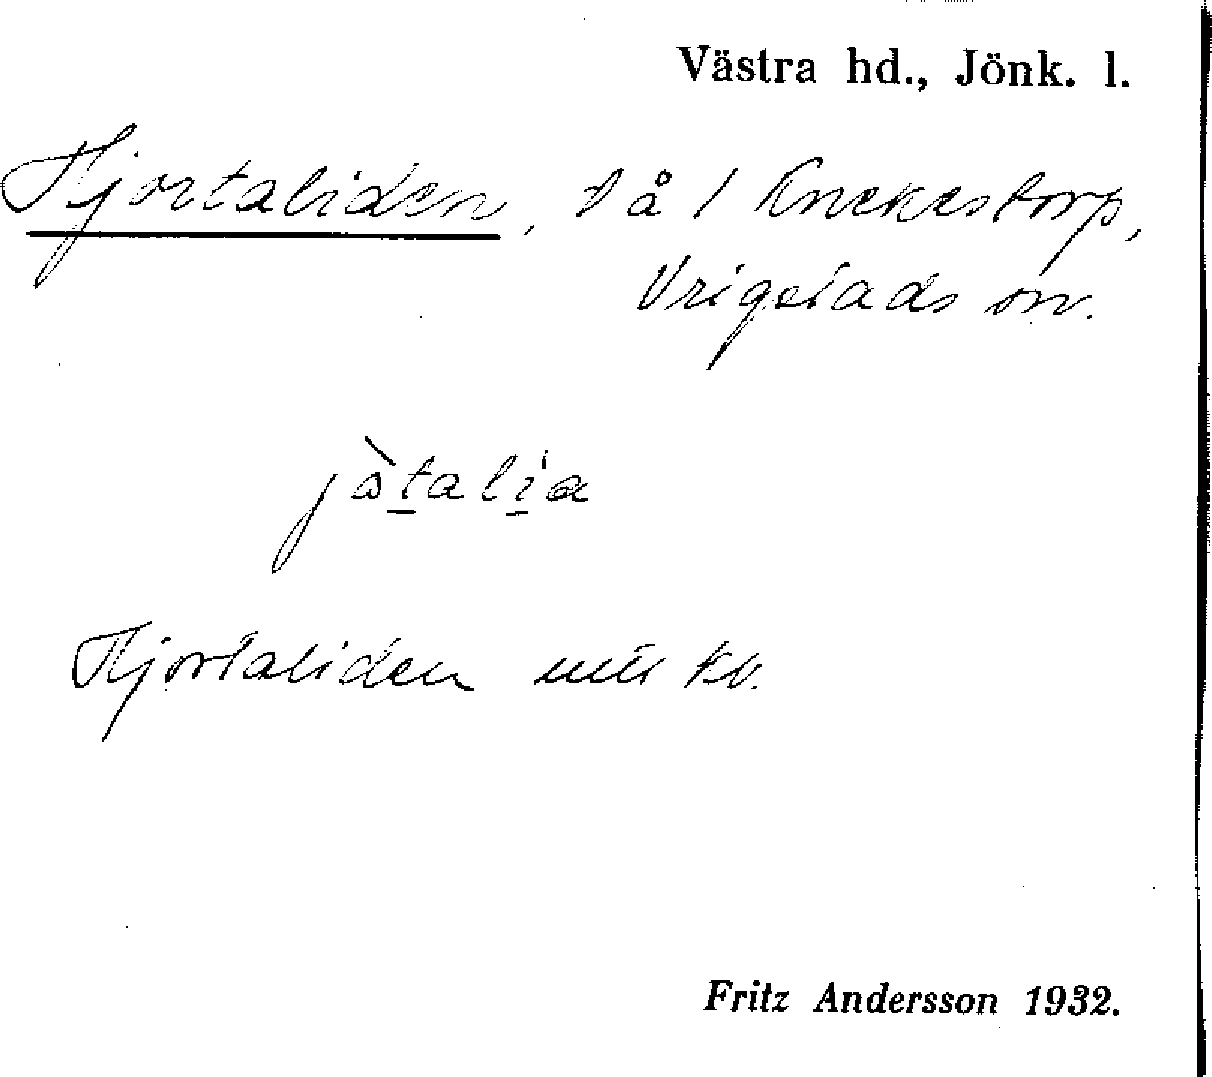 Västra hd., Jönk. l.
Hjortaliden, på 1 Knekestorp,
Vrigstads sn.
jòtalia
Hjortaliden
Fritz Andersson 1932.